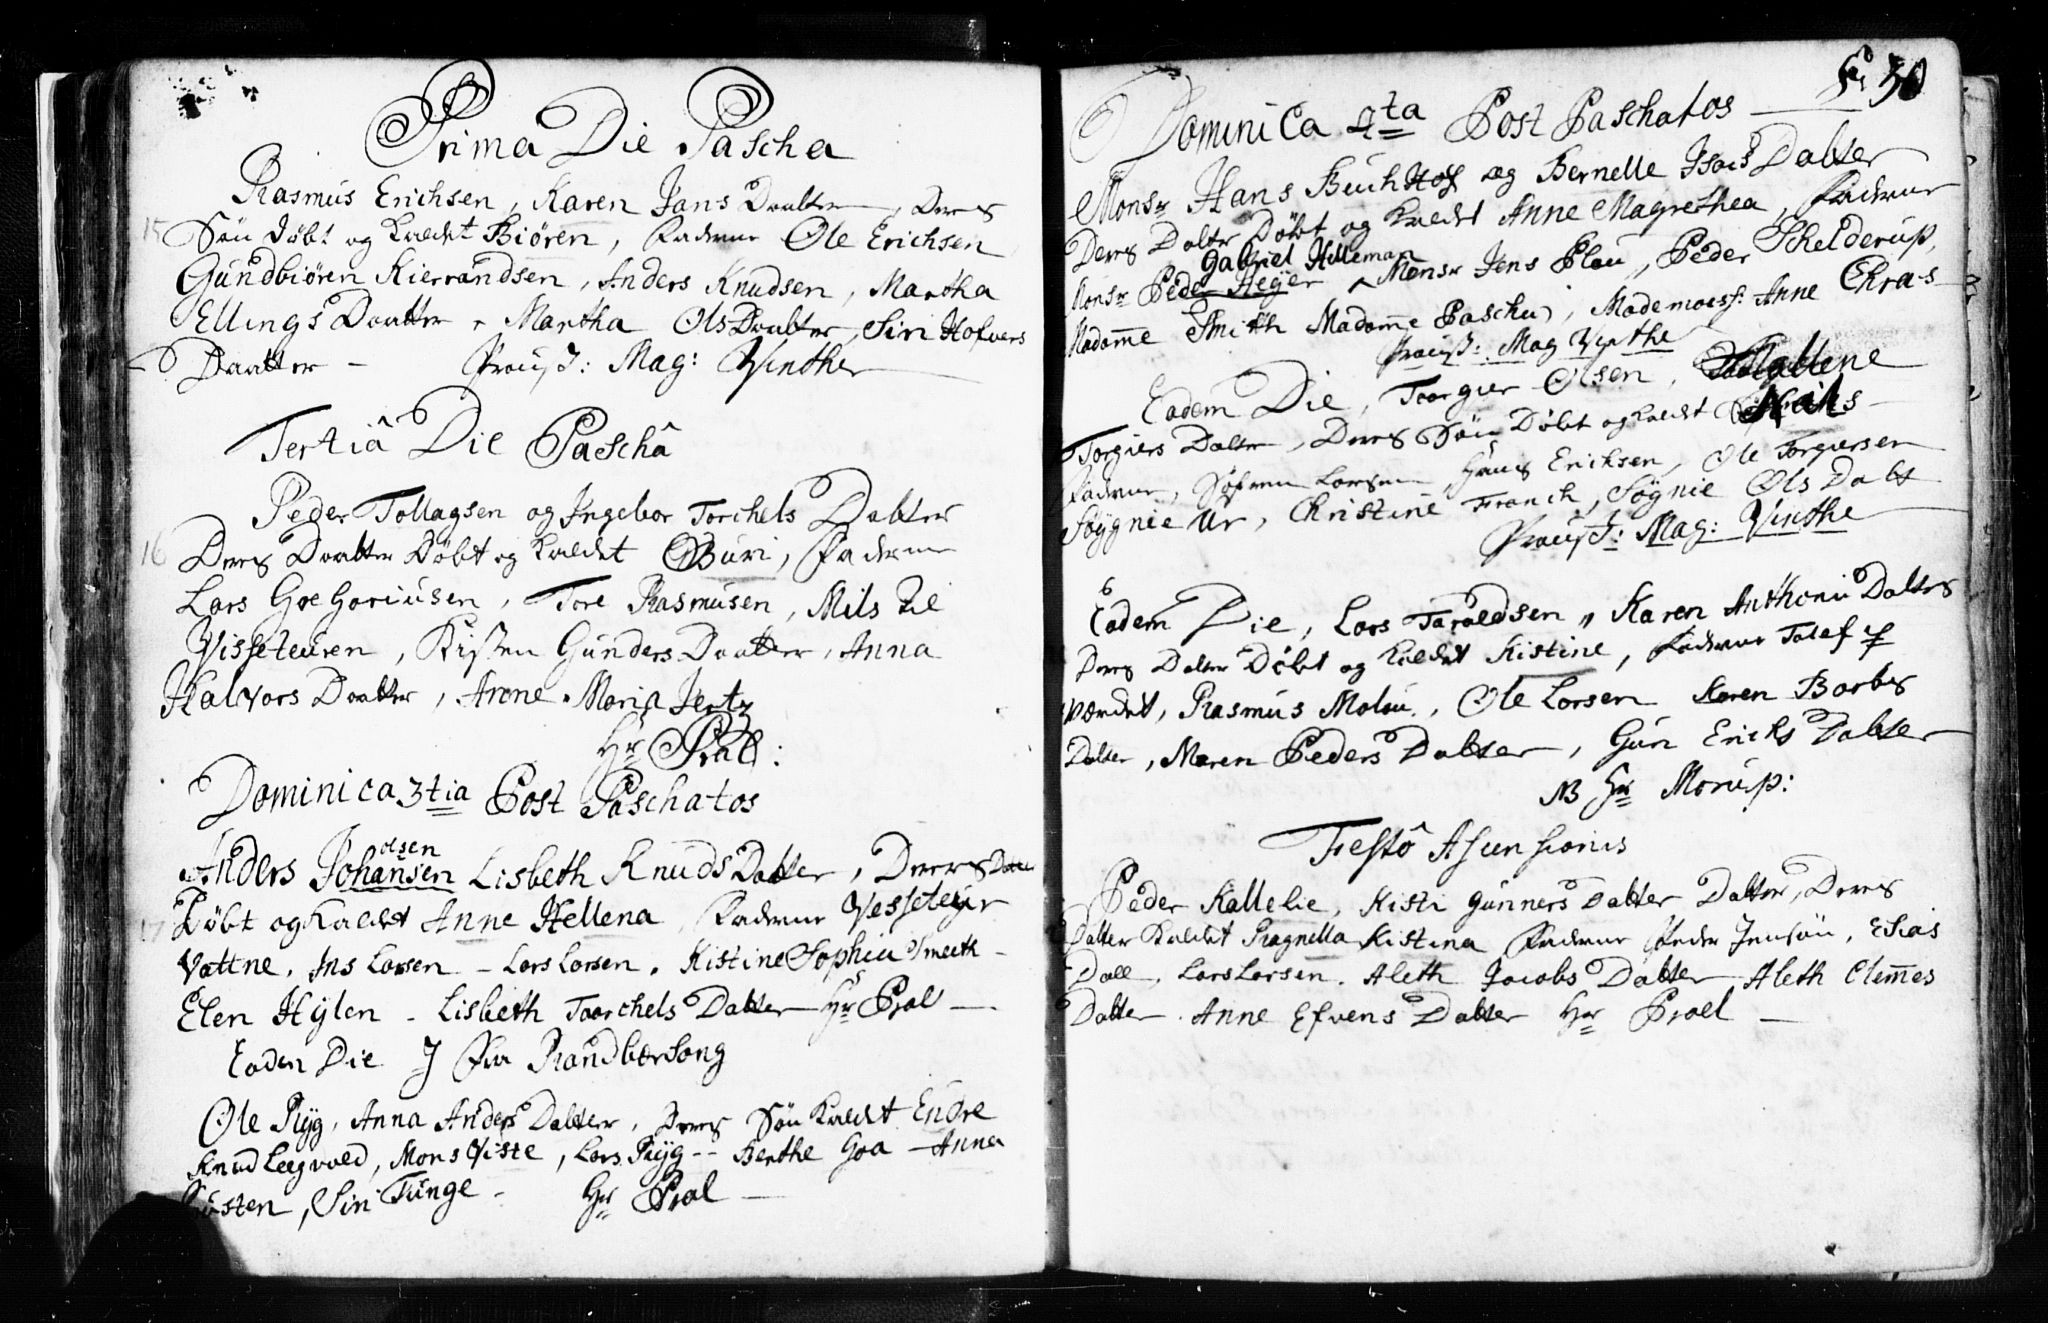 Prima Die Pascha
Rasmus Erichsen, Karen Jans Daatter, Deris
15 Søn døbt og kaldet Biören, Faderne Ole Erichsen
Gundbiören Kierrandsen, Anders Knudsen, Martha
Ellings Daatter, Martha Ols Daatter, Siri Hofvers
Daatter - Præpos: Mag: Vinther
Tertiâ Die Paschâ
Peder Tollagsen og Ingebor Torchels Datter
16 Deris Daatter Döbt og kaldet Guri, Faderne
Lars Gregoriusen, Tore Rasmusen, Nils
Visseteuren, Kisten Gunders Daatter, Anna
Halvors Daatter, Anne Maria Jertz
Hr Praal:
Dominica 3tia Post Paschatos
olsen
Anders Johansen Lisbeth Knuds Datter, Deres Datter
17 Döbt og kaldet Anne Hellena, Faderne Vesseteyir
Vattne, Ins Larsen - Lars Larsen. Kistine Sophia Smeth -
Elen Hylen - Lisbeth Taarchels Datter Hr Praal -
Eaden Die I Fra Randbærsong
Ole Ryg, Anna Anders Datter, Deres Søn kaldet Endre
Knud Leegvold, Mons Viste, Lars Ryg -- Berthe Goa - Anna
Siri Tunge - Hr Praal -
50
Dominica 4ta Post Paschatos
Monsr Hans Buchholf og Bernelle Isacs Datter
Deres Datter Döbt og kaldet Anne Magrethea, Faderne
Gabriel Hilleman
Monsr Peder Heger Monsr Jens Plou, Peder Schelderup,
Madame Smith Madame Pascha, Mademoess: Anne Chras
Præpos: Mag Vinthe
Eadem Die, Taargier Olsen, Mallene
Torgiers Datter, Deres Søn Döbt og kaldet
Faderne, Söfren Larsen, Hans Ericksen, Ole Torgersen
Söygnie Ur, Christine Franck, Sögnie Ols Datt
Præpos: Mag: Vinthe
Eadem Die, Lars Taraldsen, Karen Anthoni Datter
Deres Datter Döbt og kaldet Kistine, Faderne Tolef
Rasmus Molau, Ole Larsen Karen Barbes
Datter, Maren Peders Datter, Guri Ericks Datter
NB Hr Morup:
Festô Asunsionis
Peder Kallelie, Kisti Gunners Datter Datter, Deres
Datter kaldet Ragnella Kistina Faderne Peder Jensøn, Esias
Dall, Lars Larsen. Aleth Jacobs Datter, Aleth Clemmes
Datter. Anne Efvens Datter Hr Praal -